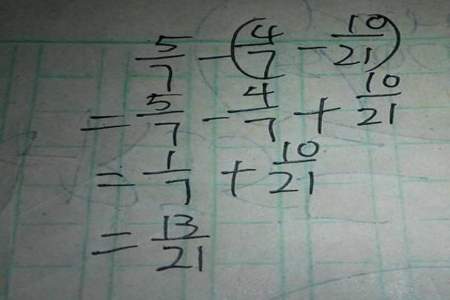 5/7 - (4/7 - 10/21)
= 5/7 - 4/7 + 10/21
= 1/7 + 10/21
= 13/21